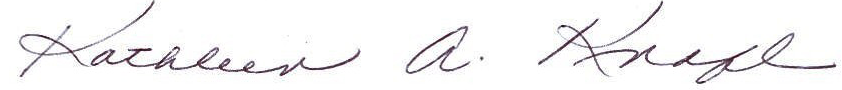 Kathleen A. Knapl